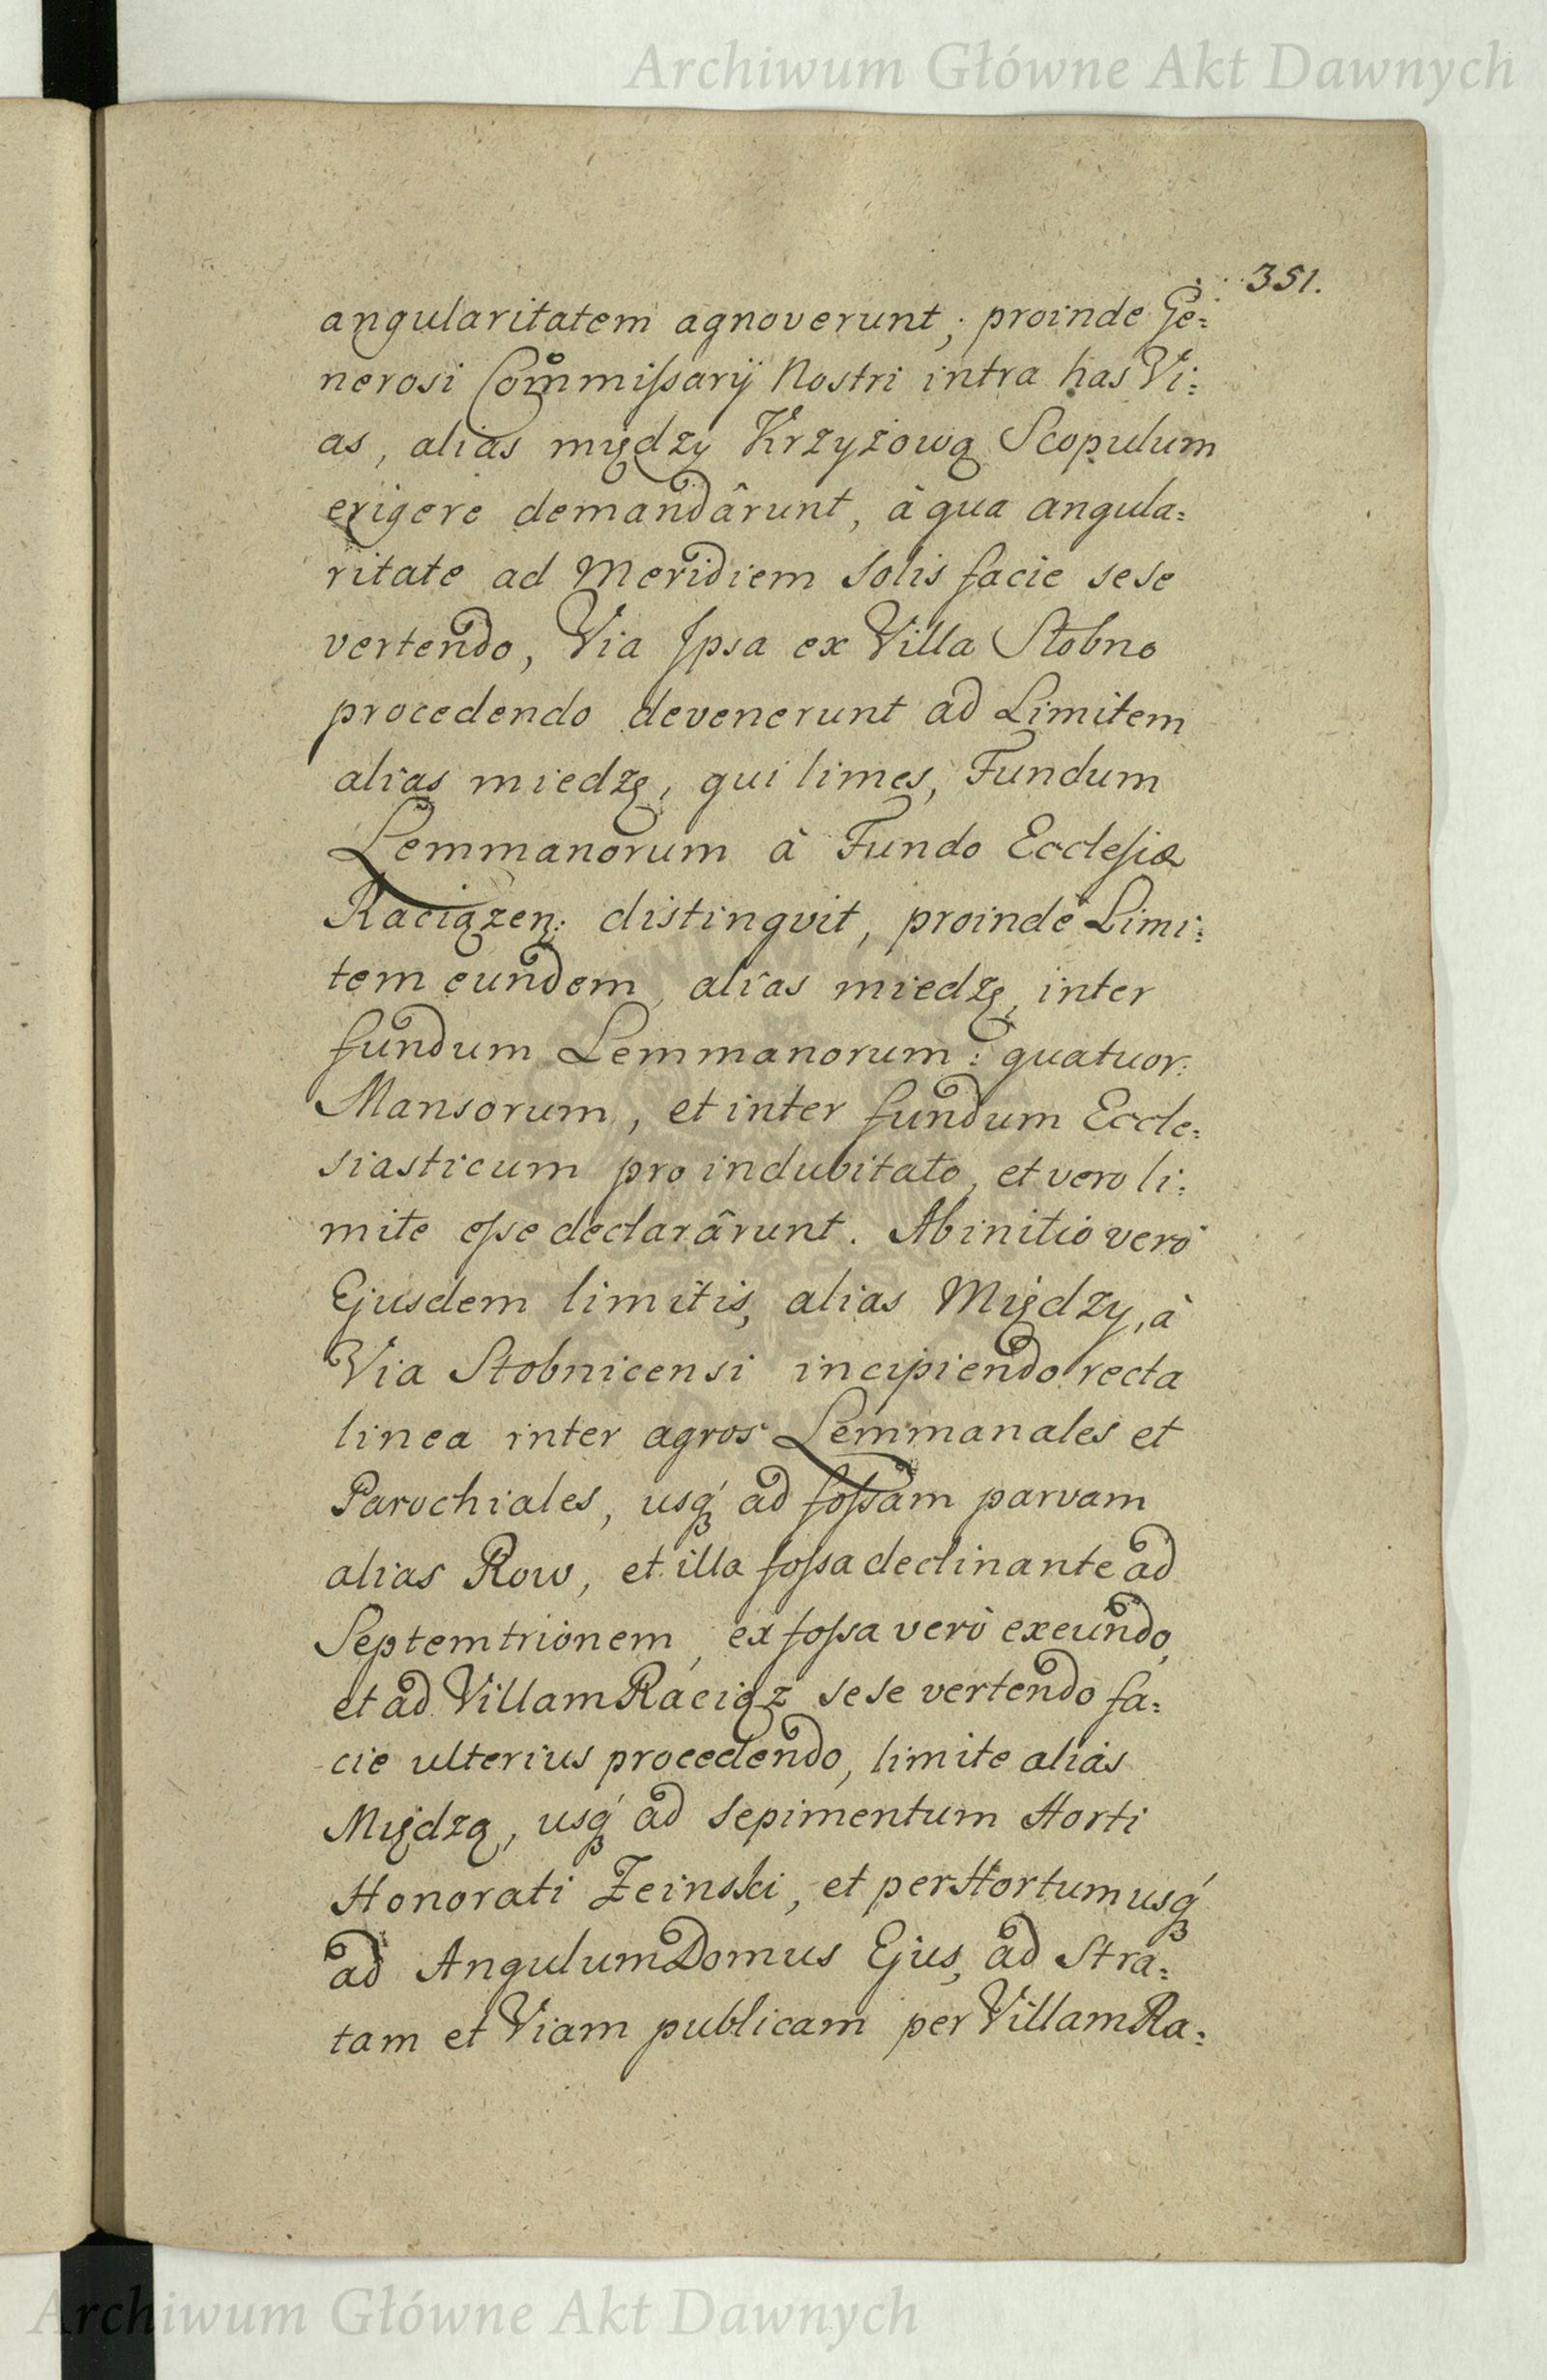 Archiwum Główne Akt Dawnych
351.
angularitatem agnoverunt; proinde Ge=
nerosi Commissarij Nostri intra has Vi=
as, alias między Krzyżową Scopulum
erigere demandârunt, à qua angula=
ritate ad Meridiem Solis facie sese
vertendo, Via Ipsa ex Villa Stobno
procedendo devenerunt ad Limitem
alias miedzę, qui limes, Fundum
Lemmanorum à Fundo Ecclesiæ
Raciązen: distingvit, proinde Limi=
tem eundem, alias miedzę, inter
fundum Lemmanorum: quatuor:
Mansorum, et inter fundum Eccle=
siasticum pro indubitato, et vero li=
mite esse declarârunt. Ab initio verò
Ejusdem limitis, alias Między, à
Via Stobnicensi incipiendo recta
linea inter agros Lemmanales et
Parochiales, usq́ ad fossam parvam
alias Row, et illa fossa declinante ad
Septemtrionem, ex fossa verò exeundo,
et ad Villam Raciąz sese vertendo fa=
cie ulterius procedendo, limite alias
Międzą, usq́ ad sepimentum Horti
Honorati Zeinski, et per Hortum usq́
ad Angulum Domus Ejus, ad Stra=
tam et Viam publicam per Villam Ra=
Archiwum Główne Akt Dawnych